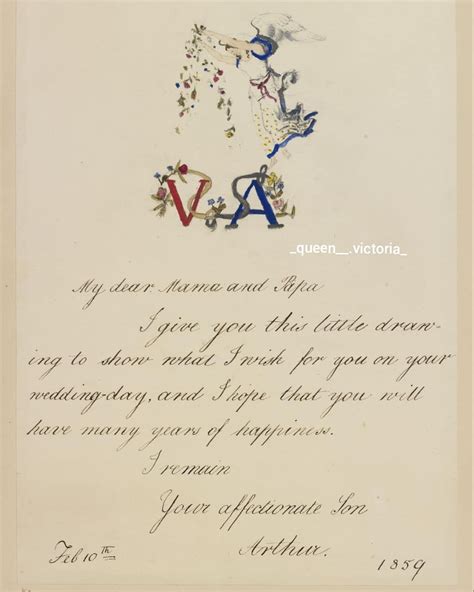 V A
_queen__.victoria_
My dear Mama and Papa
I give you this little draw-
ing to show what I wish for you on your
wedding-day, and I hope that you will
have many years of happiness.
I remain
Your affectionate Son
Arthur.
Feb 10th
1859